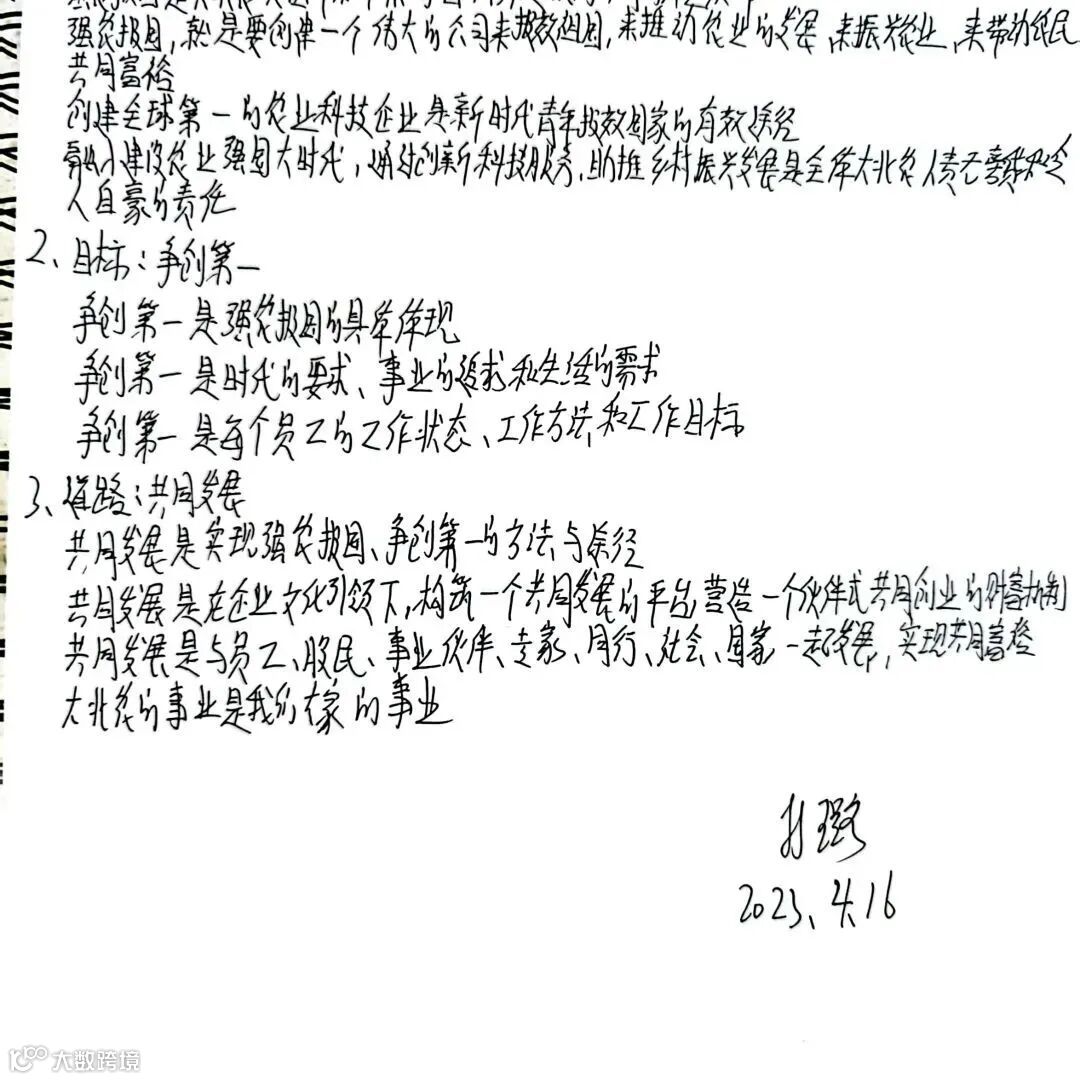 强农报国，就是要创建一个伟大的公司来报效祖国，来推动农业的发展，来振兴农业，来带动农民
共同富裕
创建全球第一的农业科技企业是新时代青年报效国家的有效途径
建设农业强国大时代，通过创新科技服务，助推乡村振兴发展是全体大北农人责无旁贷和令
人自豪的责任
2、目标：争创第一
争创第一是强农报国的具体体现
争创第一是时代的要求、事业的追求和生活的需求
争创第一是每个员工的工作状态、工作方法和工作目标
3、道路：共同发展
共同发展是实现强农报国、争创第一的方法与途径
共同发展是在企业文化引领下，构筑一个共同发展的平台，营造一个伙伴式共同创业的财富机制
共同发展是与员工、股民、事业伙伴、专家、同行、社会、国家一起发展，实现共同富裕
大北农的事业是我们大家的事业
璐
2023、4、16
大数跨境